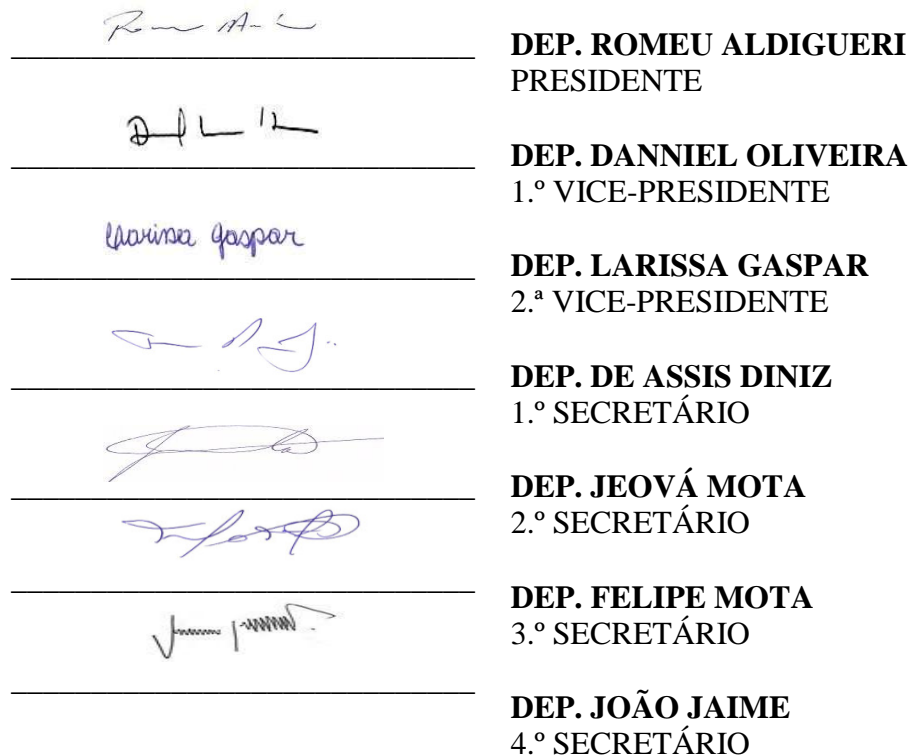 DEP. ROMEU ALDIGUERI
PRESIDENTE
DEP. DANNIEL OLIVEIRA
1.º VICE-PRESIDENTE
Larissa Gaspar
DEP. LARISSA GASPAR
2.ª VICE-PRESIDENTE
DEP. DE ASSIS DINIZ
1.º SECRETÁRIO
DEP. JEOVÁ MOTA
2.º SECRETÁRIO
DEP. FELIPE MOTA
3.º SECRETÁRIO
DEP. JOÃO JAIME
4.º SECRETÁRIO